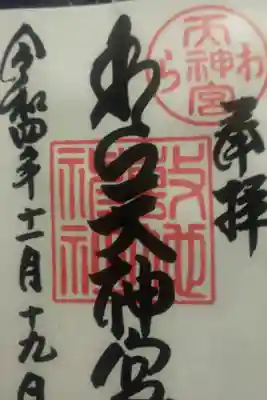 奉拝
わら天神宮
わら天神宮
敷地神社
令和四年十一月十九日